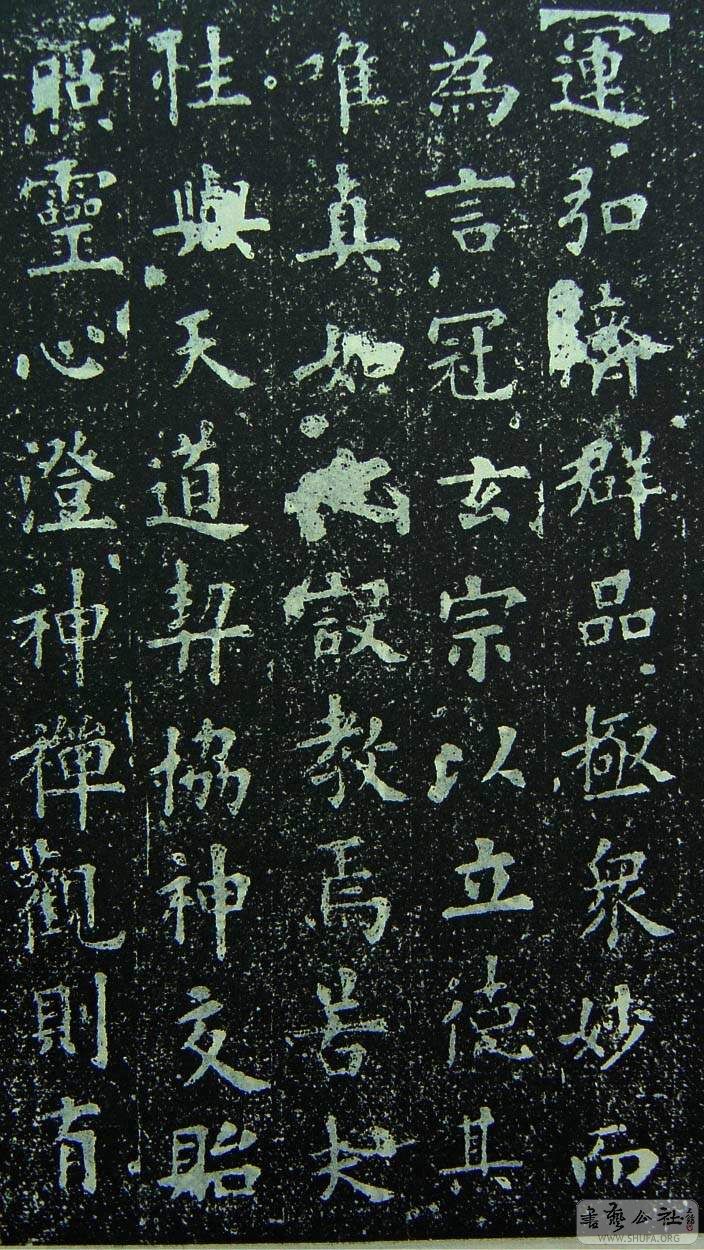 運弘濟群品極衆妙而
為言冠玄宗以立德其
唯真如設教焉若夫
性與天道契協神交貽
照靈心澄神禪觀則有
書藝公社
WWW.SHUFA.ORG